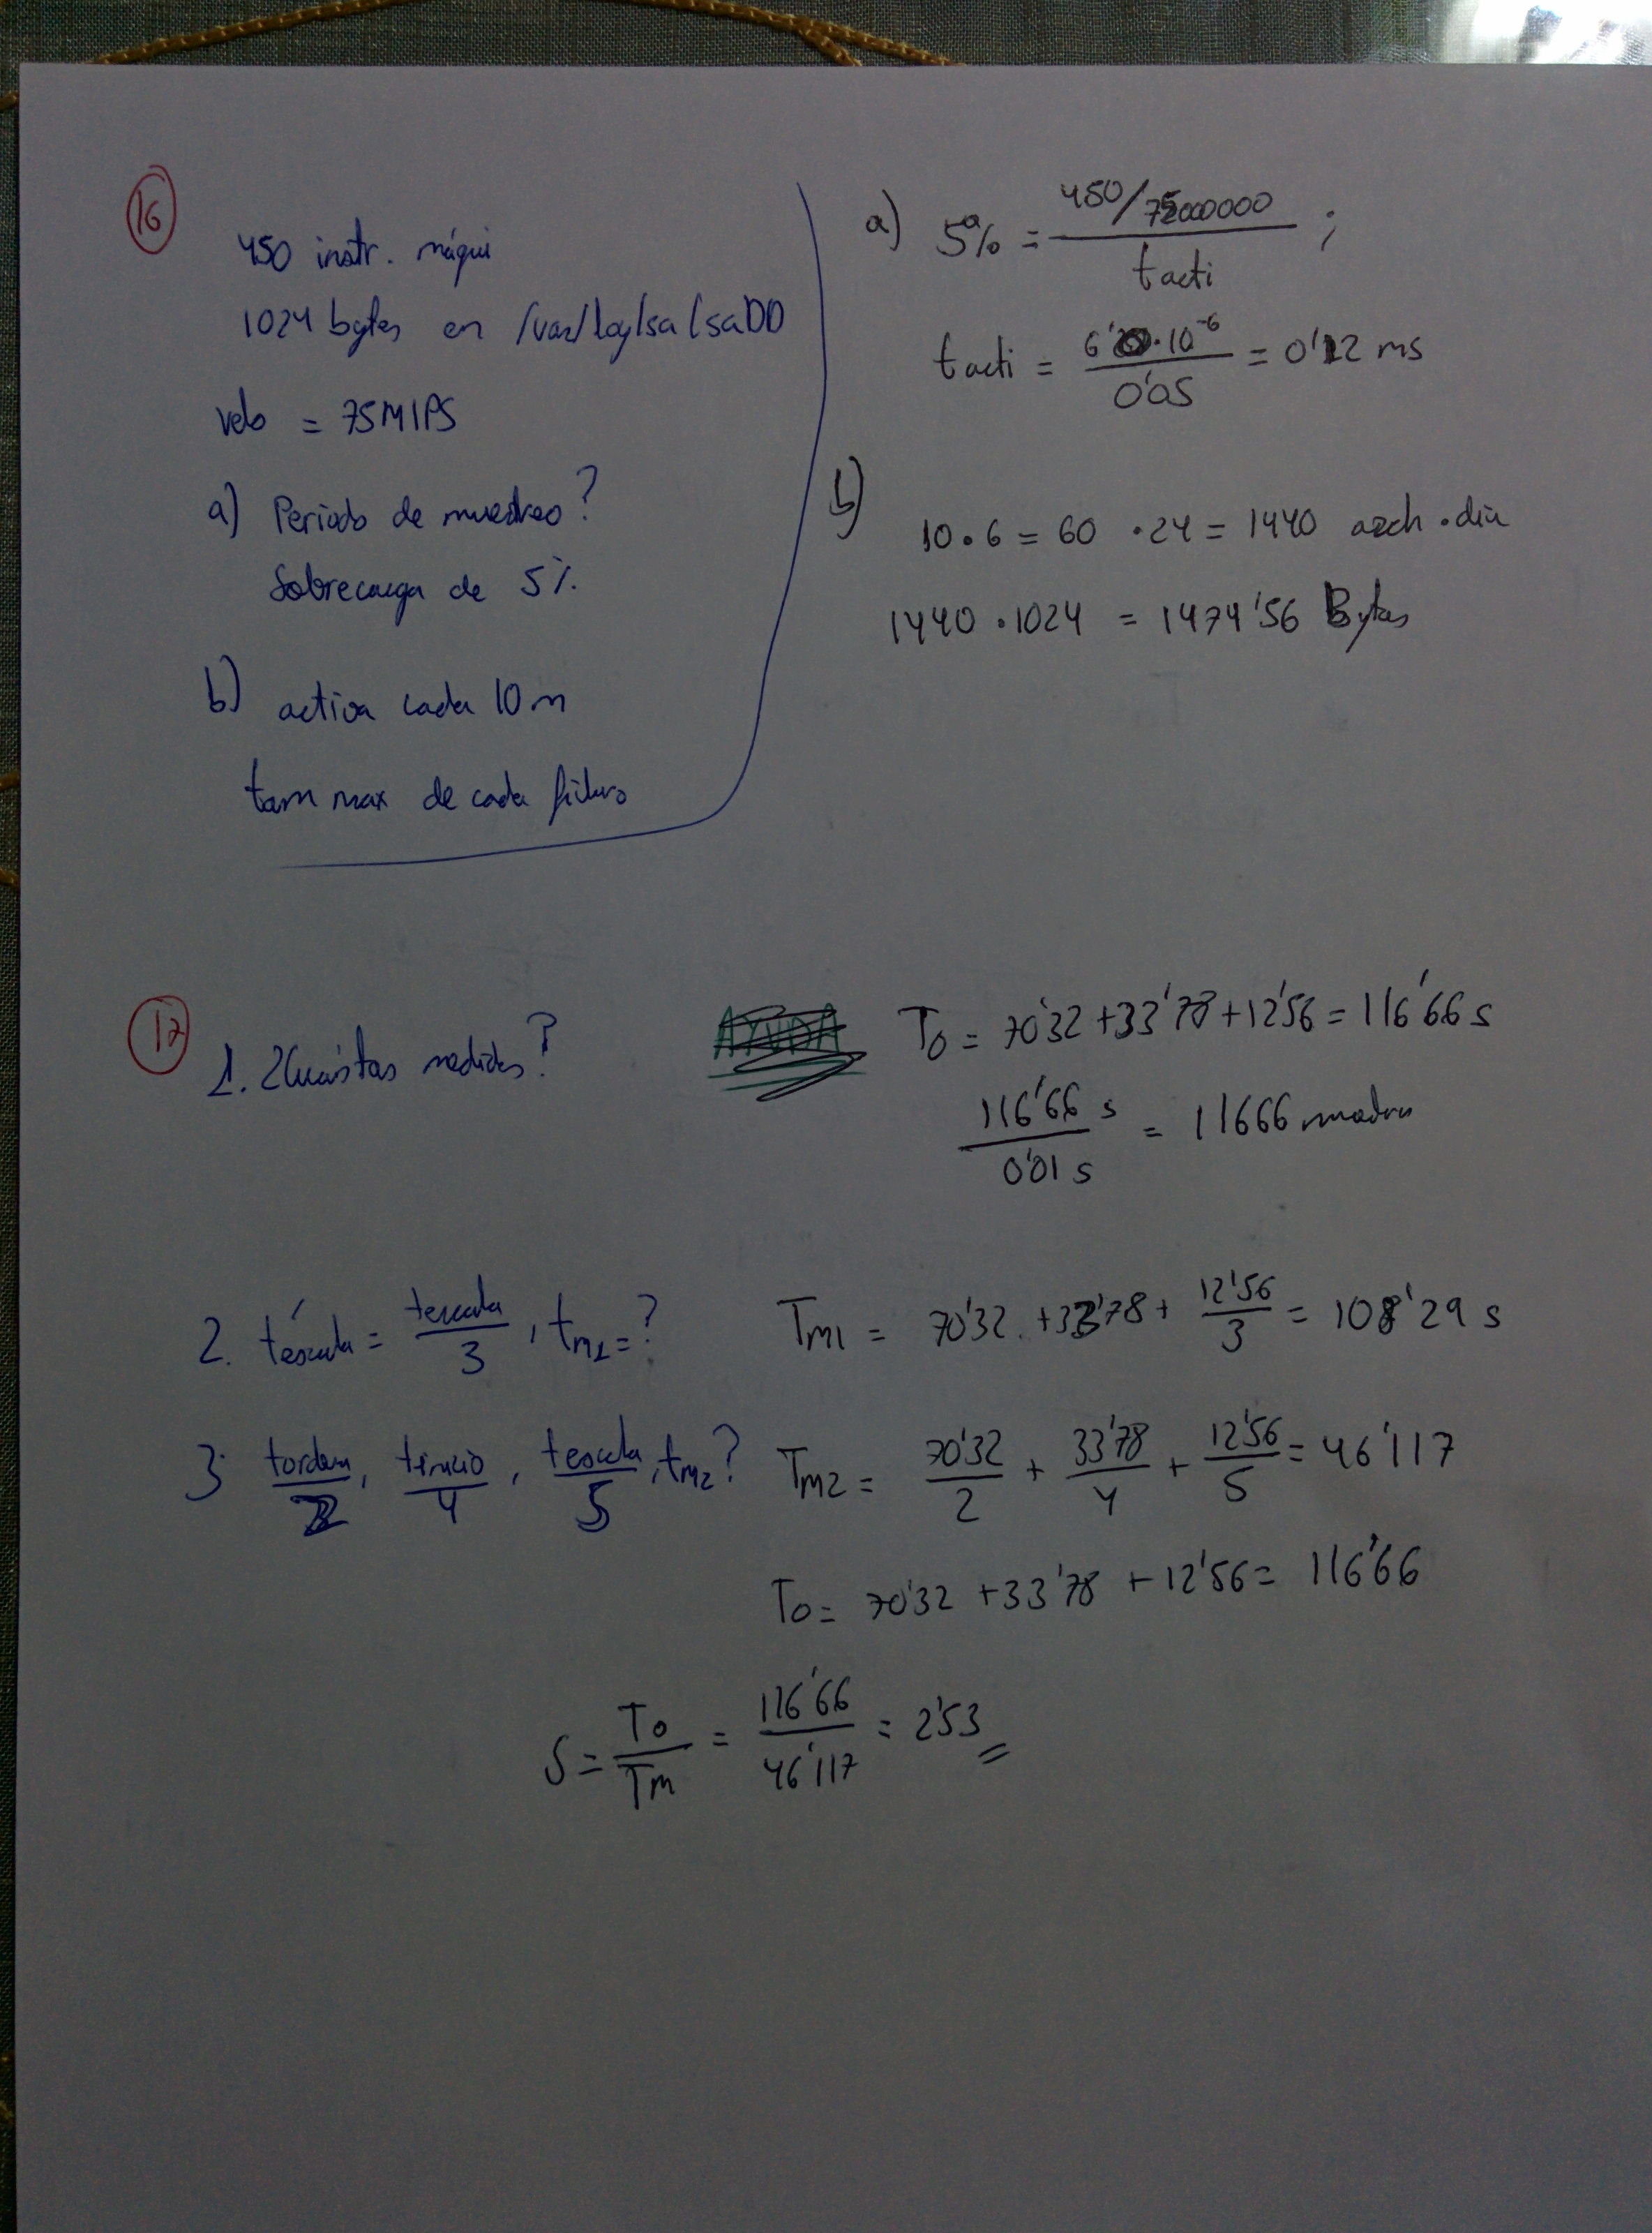 16
450 instr. máqui
1024 bytes en /var/log/sa/saDD
velo = 75MIPS
a) Periodo de muestreo?
Sobrecarga de 5%.
b) activa cada 10m
tam max de cada fichero
a) 5% = 450/75000000 / tacti ;
tacti = 6'0·10⁻⁶ / 0'05 = 0'12 ms
b)
10·6 = 60 ·24 = 1440 arch·día
1440·1024 = 1474'56 Bytes
17
1. ¿Cuántas medidas?
AYUDA
To = 70'32 + 33'78 + 12'56 = 116'66 s
116'66 s / 0'01 s = 11666 muestras
2. t'escala = tescala / 3 , tm1 = ?
Tm1 = 70'32 + 33'78 + 12'56 / 3 = 108'29 s
3. tordena / 2 , tinicio / 4 , tescala / 5 , tm2 ?
Tm2 = 70'32 / 2 + 33'78 / 4 + 12'56 / 5 = 46'117
To = 70'32 + 33'78 + 12'56 = 116'66
S = To / Tm = 116'66 / 46'117 = 2'53